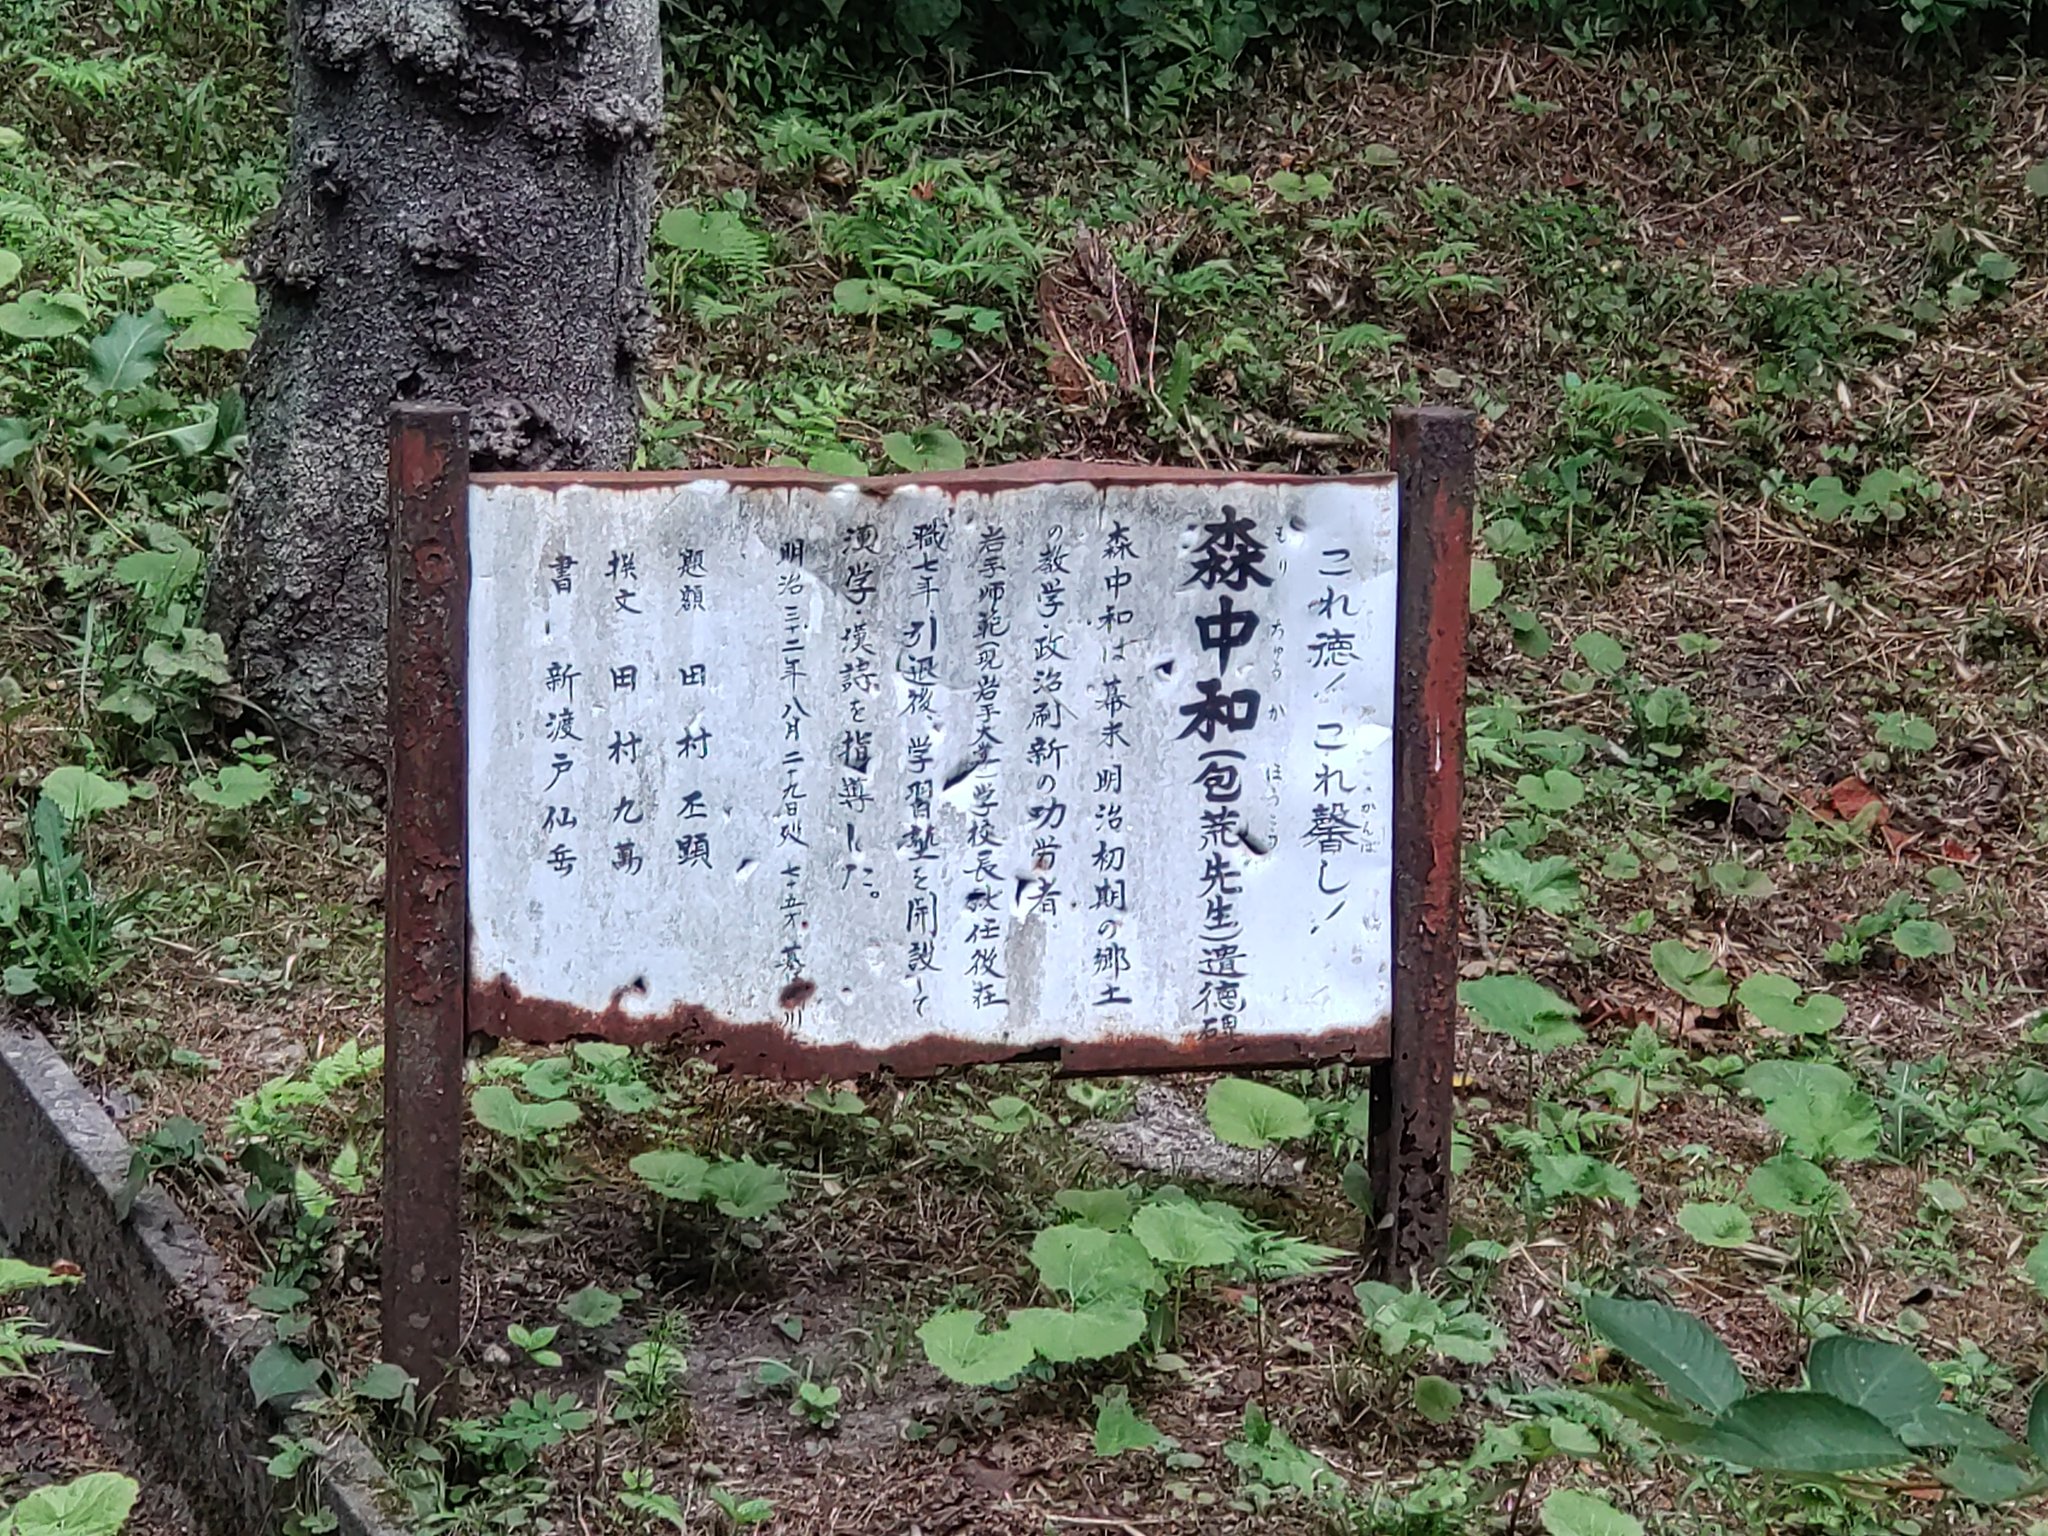 これ徳！これ馨し！
森中和(包荒先生)遺徳碑
森中和は幕末明治初期の郷土
の教学・政治刷新の功労者
岩手師範(現岩手大学)学校長就任後在
職七年、引退後、学習塾を開設して
漢学・漢詩を指導した。
明治三十二年八月二十九日歿 七十五才 墓
題額 田村丕顕
撰文 田村九萬
書 新渡戸仙岳